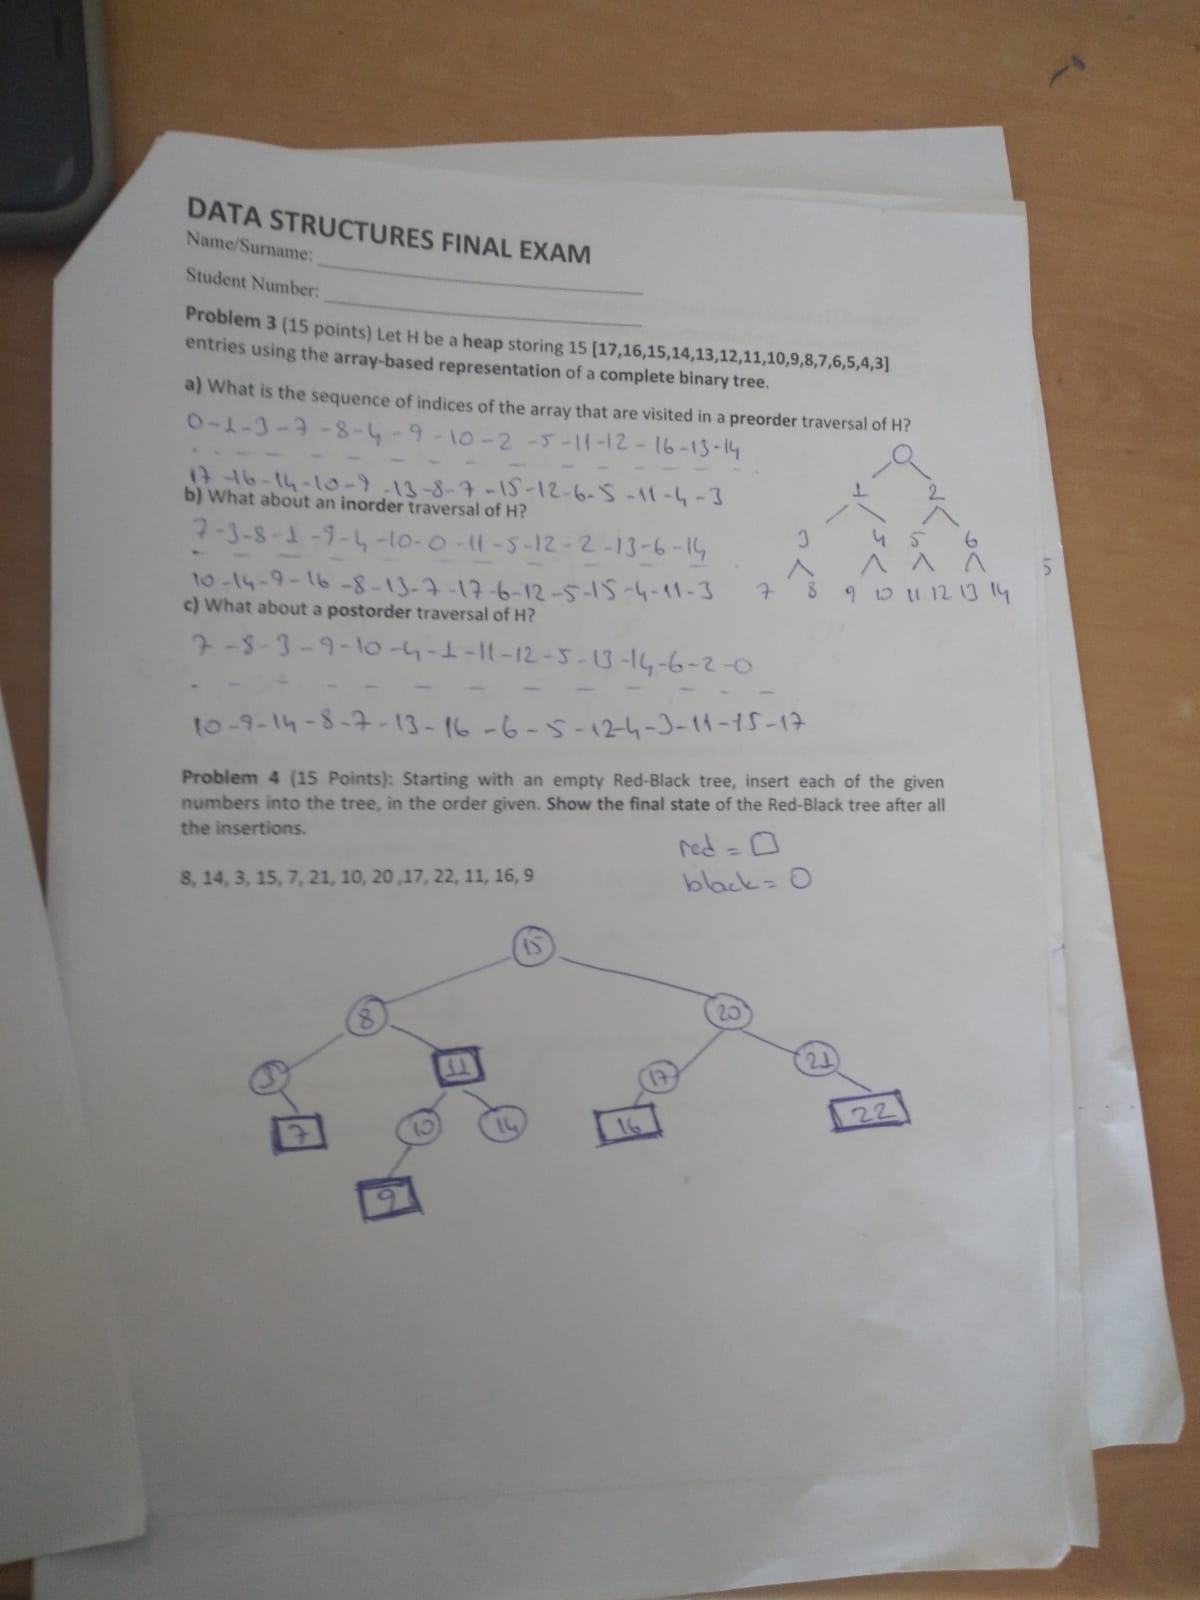 DATA STRUCTURES FINAL EXAM
Name/Surname:
Student Number:
Problem 3 (15 points) Let H be a heap storing 15 [17,16,15,14,13,12,11,10,9,8,7,6,5,4,3]
entries using the array-based representation of a complete binary tree.
a) What is the sequence of indices of the array that are visited in a preorder traversal of H?
0-1-3-7-8-4-9-10-2-5-11-12-16-13-14
17-16-14-10-9-13-8-7-15-12-6-5-11-4-3
b) What about an inorder traversal of H?
7-3-8-1-9-4-10-0-11-5-12-2-13-6-14
10-14-9-16-8-13-7-17-6-12-5-15-4-11-3
c) What about a postorder traversal of H?
7-8-3-9-10-4-1-11-12-5-13-14-6-2-0
10-9-14-8-7-13-16-6-5-12-4-3-11-15-17
0
1 2
3 4 5 6
7 8 9 10 11 12 13 14
5
Problem 4 (15 Points): Starting with an empty Red-Black tree, insert each of the given
numbers into the tree, in the order given. Show the final state of the Red-Black tree after all
the insertions.
red = □
black = O
8, 14, 3, 15, 7, 21, 10, 20 ,17, 22, 11, 16, 9
15
8 20
3 11 17 21
7 10 14 16 22
9